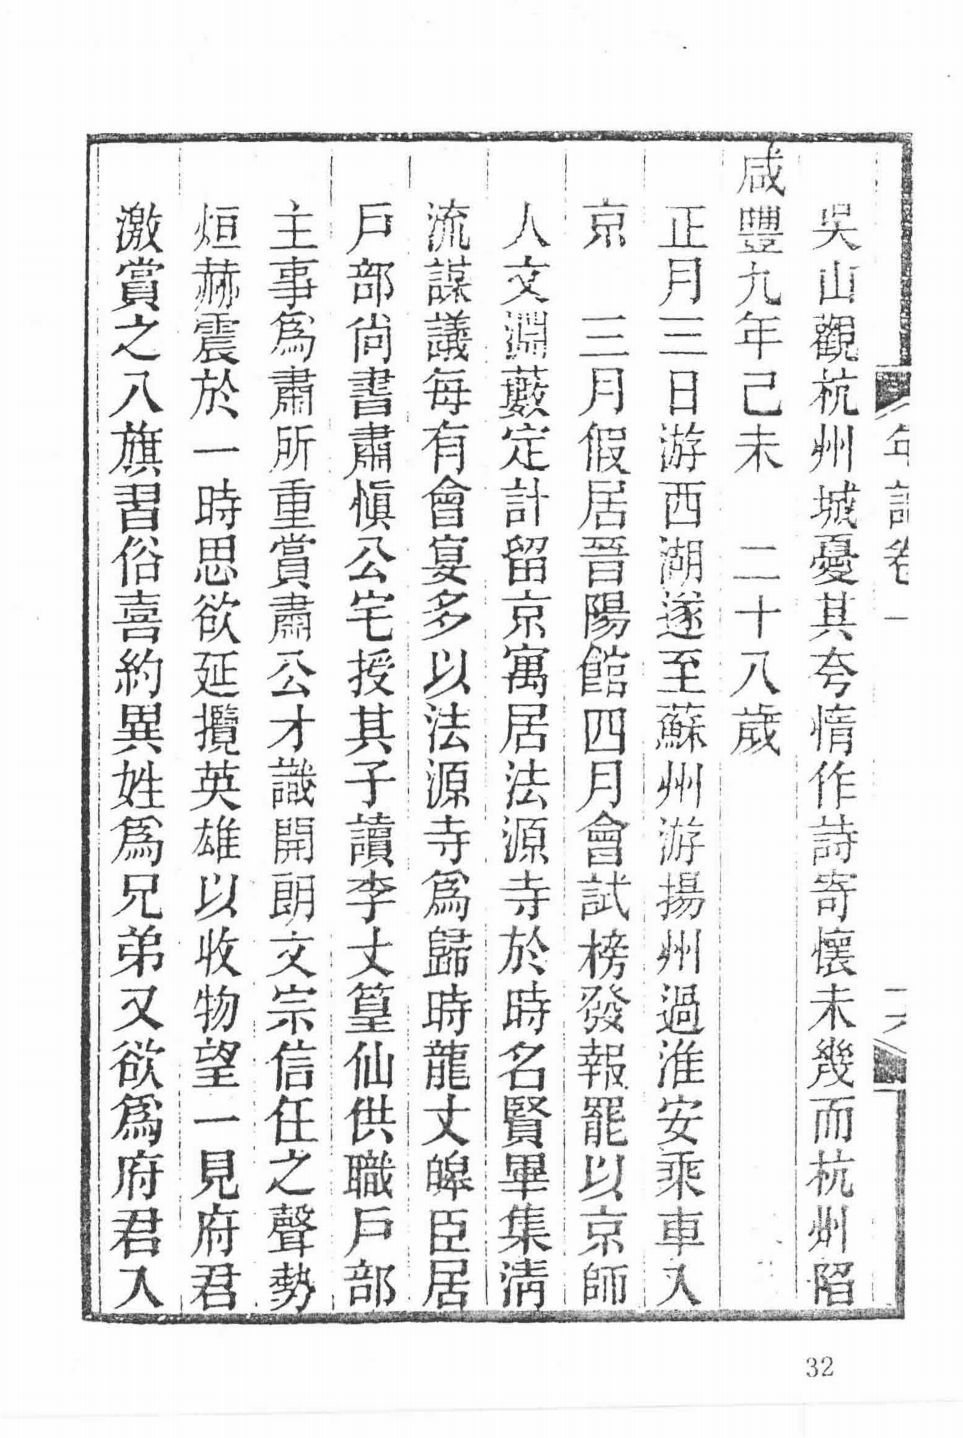 年譜卷一
十六
吳山觀杭州城憂其夸惰作詩寄懷未幾而杭州陷
咸豐九年己未　二十八歲
正月三日游西湖遂至蘇州游揚州過淮安乘車入
京　三月假居晉陽館四月會試榜發報罷以京師
人文淵藪定計留京寓居法源寺於時名賢畢集清
流謀議每有會宴多以法源寺為歸時龍丈皞臣居
戶部尚書肅慎公宅授其子讀李丈篁仙供職戶部
主事為肅所重賞肅公才識開朗文宗信任之聲勢
烜赫震於一時思欲延攬英雄以收物望一見府君
激賞之八旗習俗喜約異姓為兄弟又欲為府君入
32